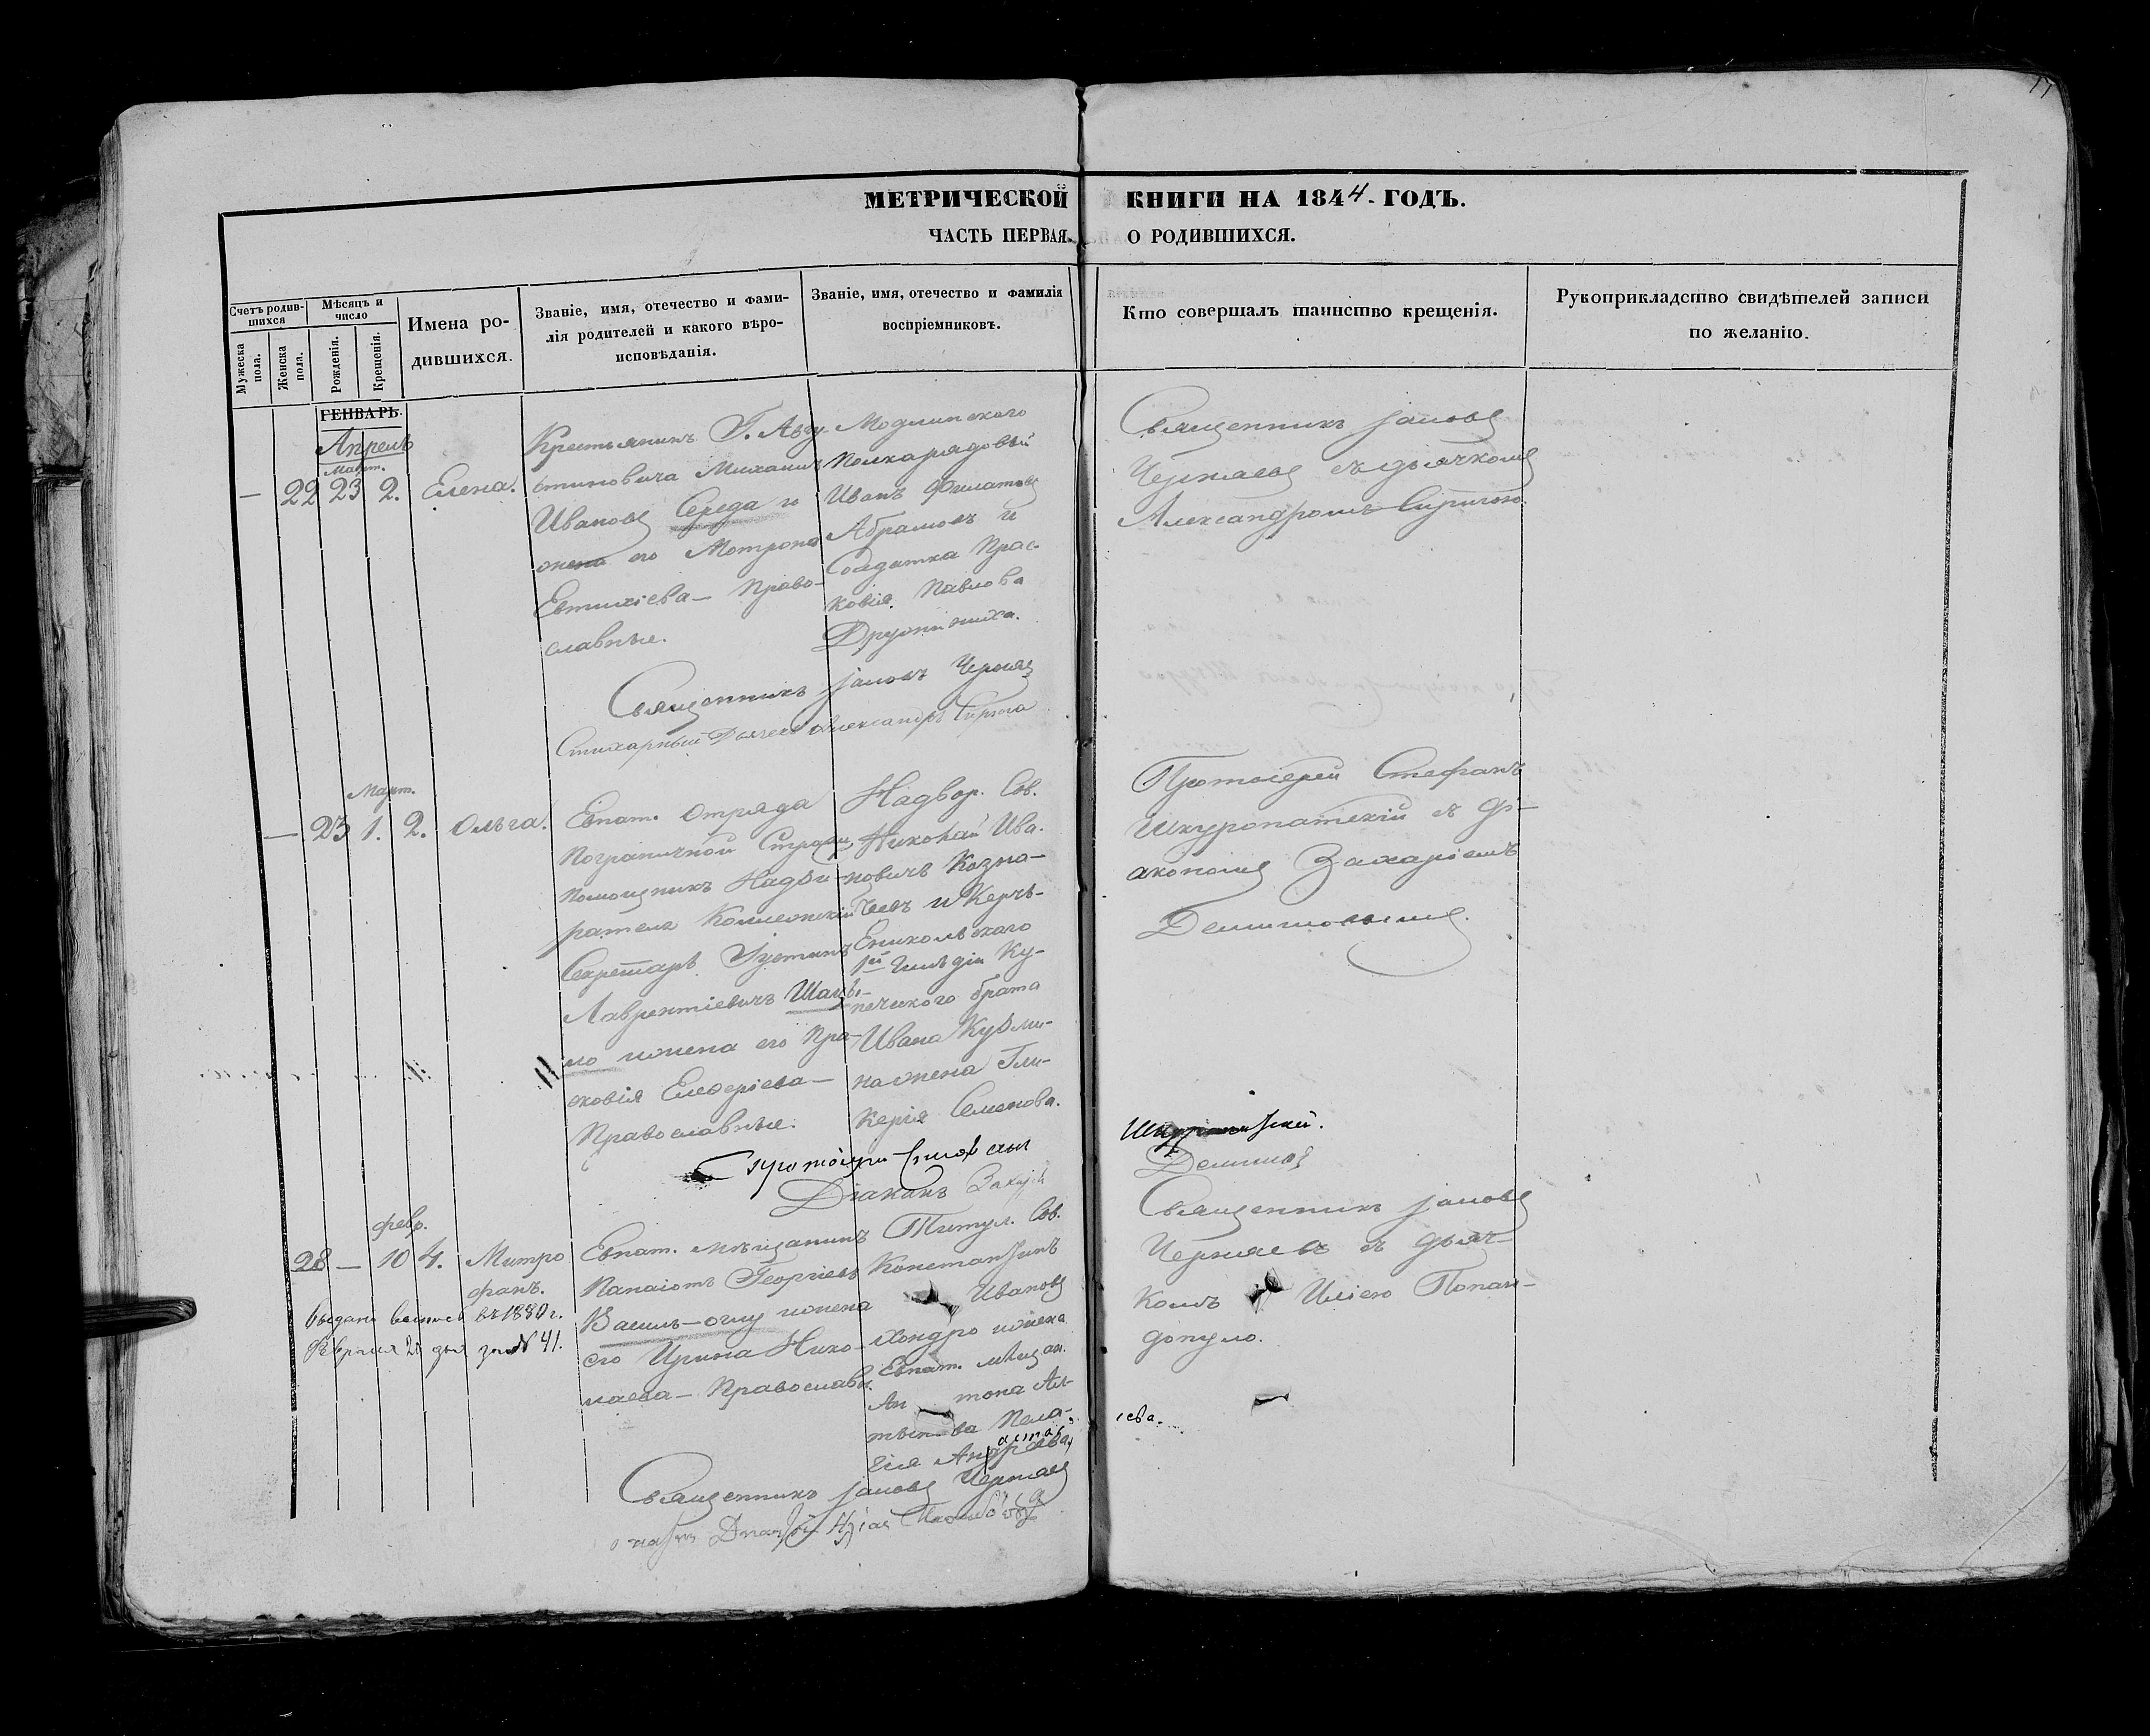 17
МЕТРИЧЕСКОЙ КНИГИ НА 1844. ГОДЪ.
ЧАСТЬ ПЕРВАЯ. О РОДИВШИХСЯ.
Счетъ родив-
шихся
Мужеска пола.
Женска пола.
Мѣсяцъ и
число
Рожденія.
Крещенія.
Имена ро-
дившихся.
Званіе, имя, отечество и фами-
лія родителей и какого вѣро-
исповѣданія.
Званіе, имя, отечество и фамилія
воспріемниковъ.
Кто совершалъ таинство крещенія.
Рукоприкладство свидѣтелей записи
по желанію.
ГЕНВАРЬ.
Апрель
Март.
— 22 23 2. Елена.
Крестьянинъ Г. Авгу-
стиновича Михаилъ
Ивановъ Середа и
жена его Мотрона
Евтихіева — Право-
славные.
Модлинского
Полка рядовый
Иванъ Филатовъ
Абрамовъ и
Солдатка Прас-
ковія Павлова
Священникъ Іаковъ
Черняевъ съ дьячкомъ
Александромъ
Священникъ Іаковъ Черняевъ
Стихарный Дьячекъ Александръ
Март.
— 23 1. 2. Ольга.
Евпат. Отряда
Пограничной Стражи
помощникъ Надзи-
рателя Коллежскій
Секретарь Іустинъ
Лаврентіевичъ
ло и жена его Пра-
сковія Елеѳеріева —
Православные.
Надвор. Сов.
Николай Ива-
новичъ Казна-
чеевъ и Керчь-
Еникольского
1й Гильдіи Ку-
печеского брата
Ивана Кузьми-
на жена Гли-
керія Семенова.
Протоіерей Стефанъ
Шкуропатскій съ Ді-
акономъ Захаріемъ
Демишовымъ.
Протоіерей Стефанъ Шкуропатскій.
Діаконъ Захарій
февр.
28 — 10 4. Митро
фанъ.
Выдана выпись въ 1880 г.
Февраля 28 дня за № 41.
Евпат. мѣщанинъ
Панаіотъ Георгіевъ
Василь-оглу и жена
его Ирина Нико-
лаева — Православн.
Титул. Сов.
Константинъ
Ивановъ
Хондро и жена
Евпат. мѣщан.
Антона Ал-
Пела-
гія
іева.
Священникъ Іаковъ
Черняевъ съ дьяч-
комъ Иліею Попан-
допуло.
Священникъ Іаковъ Черняевъ